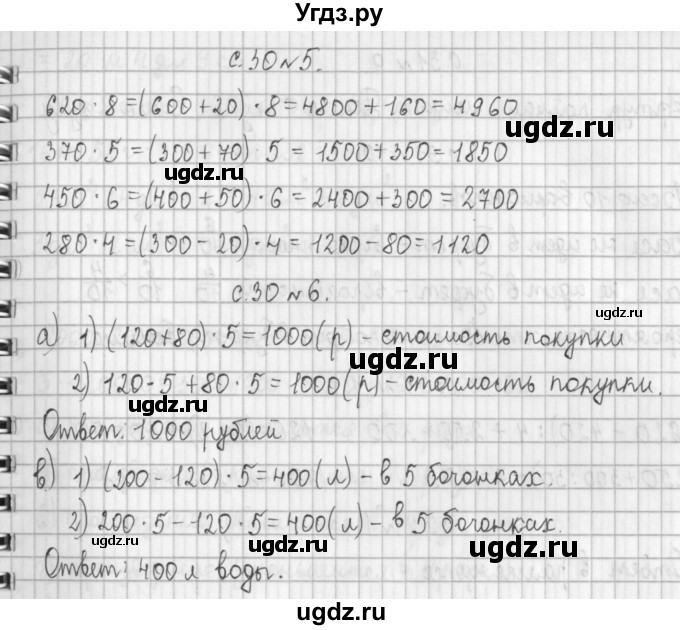 Угдз.ру
с.30 №5.
620·8=(600+20)·8=4800+160=4960
370·5=(300+70)·5=1500+350=1850
450·6=(400+50)·6=2400+300=2700
280·4=(300-20)·4=1200-80=1120
с.30 №6.
а) 1) (120+80)·5=1000(р) - стоимость покупки
2) 120·5+80·5=1000(р) - стоимость покупки.
Ответ: 1000 рублей
в) 1) (200-120)·5=400(л) - в 5 бочонках.
2) 200·5-120·5=400(л) - в 5 бочонках.
Ответ: 400 л воды.
ugdz.ru
ugdz.ru
ugdz.ru
ugdz.ru
ugdz.ru
ugdz.ru
ugdz.ru
ugdz.ru